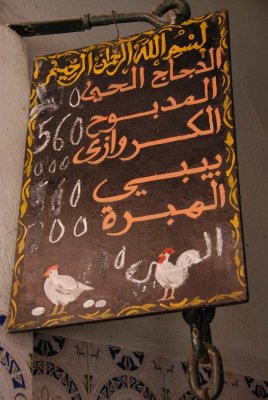 بسم الله الرحمن الرحيم
الدجاج الحي
المدبوح 560
الكروازي
بيبي
الهبرة